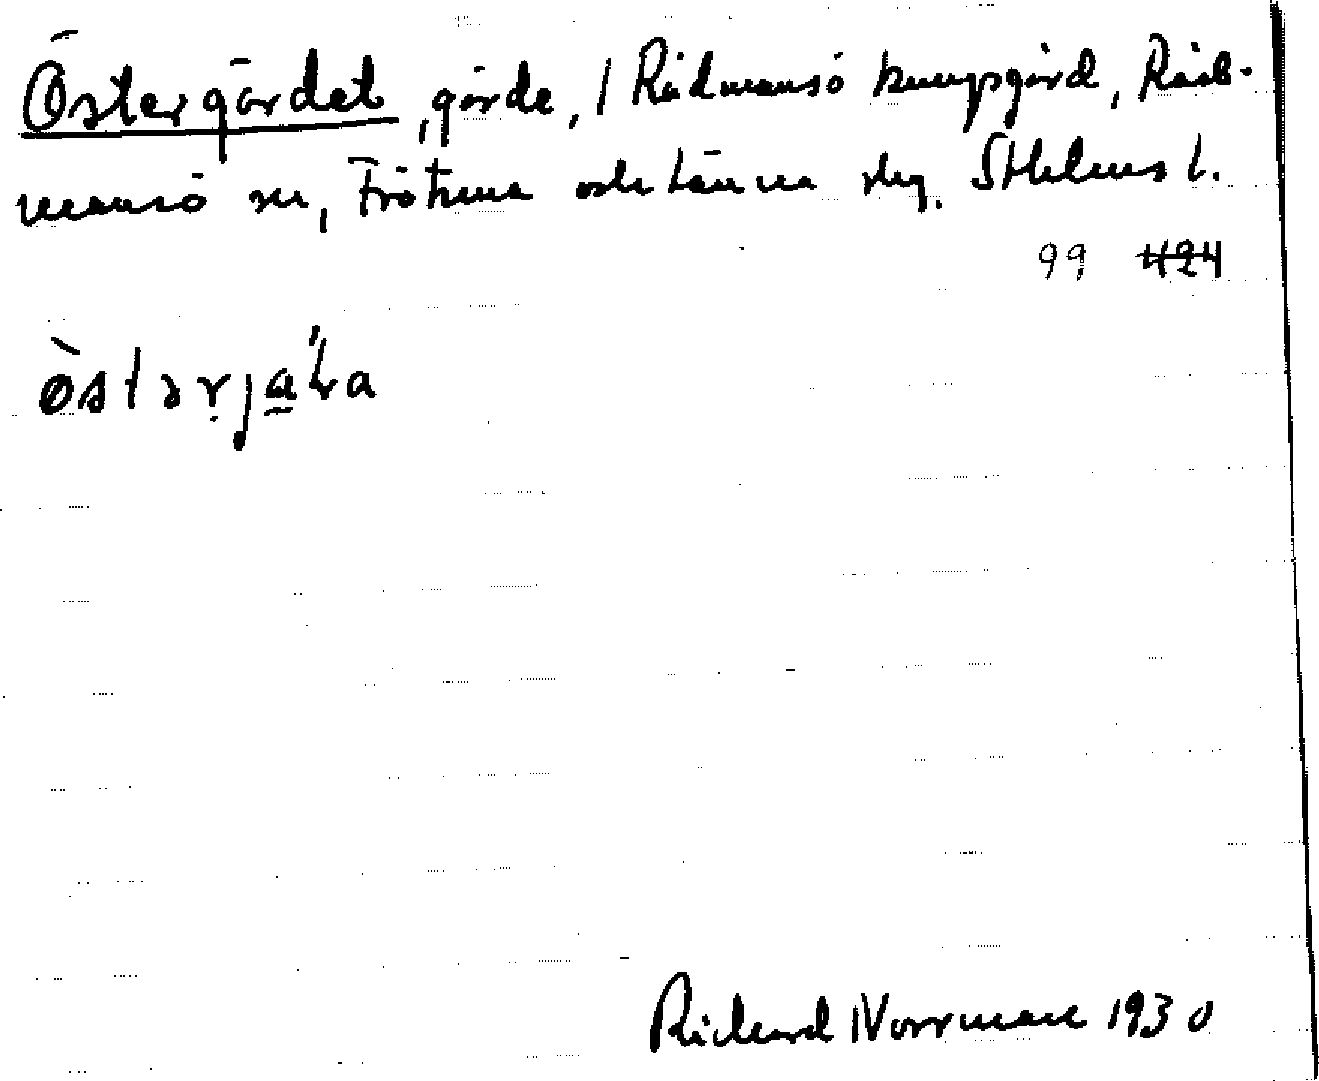 Östergärdet, gärde, / Rådmansö kungsgård, Råd-
mansö sn, Frötuna och Länna skg. Sthlms l.
99 424
Richard Norrman 1930